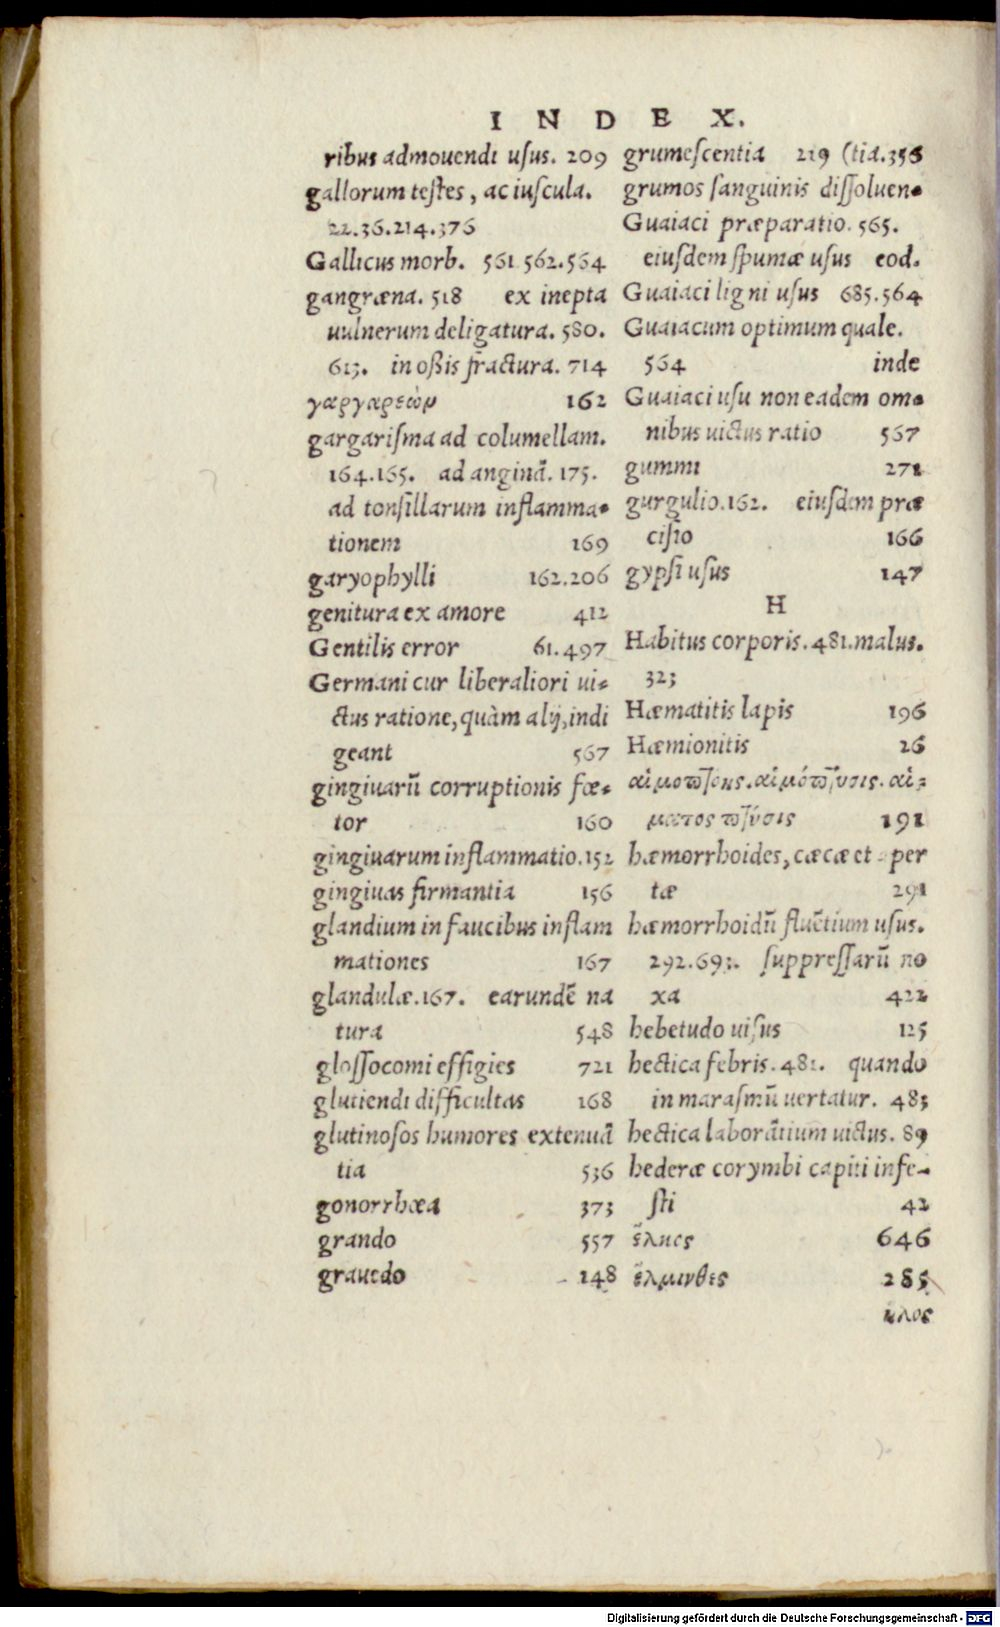 INDEX.
ribus admouendi usus. 209
gallorum testes, ac iuscula.
22.36.214.376
Gallicus morb. 561.562.564
gangræna. 518 ex inepta
uulnerum deligatura. 580.
613. in oßis fractura. 714
γαργαρεὼν 162
gargarisma ad columellam.
164.165. ad anginã. 175.
ad tonsillarum inflamma-
tionem 169
garyophylli 162.206
genitura ex amore 412
Gentilis error 61.497
Germani cur liberaliori ui-
ctus ratione, quàm alij, indi
geant 567
gingiuarũ corruptionis fœ-
tor 160
gingiuarum inflammatio. 152
gingiuas firmantia 156
glandium in faucibus inflam
mationes 167
glandulæ. 167. earundẽ na
tura 548
glossocomi effigies 721
glutiendi difficultas 168
glutinosos humores extenuã
tia 536
gonorrhœa 373
grando 557
grauedo 148
grumescentia 219 (tia. 356
grumos sanguinis dissoluen-
Guaiaci præparatio. 565.
eiusdem spumæ usus eod.
Guaiaci ligni usus 685.564
Guaiacum optimum quale.
564 inde
Guaiaci usu non eadem om-
nibus uictus ratio 567
gummi 271
gurgulio. 162. eiusdem præ
cisio 166
gypsi usus 147
H
Habitus corporis. 481. malus.
323
Hæmatitis lapis 196
Hæmionitis 26
αἱ-
ματος πτύσις 191
hæmorrhoides, cæcæ et aper
tæ 291
hæmorrhoidũ fluẽtium usus.
292.693. suppressarũ no
xa 422
hebetudo uisus 125
hectica febris. 481. quando
in marasmũ uertatur. 483
hectica laborãtium uictus. 89
hederæ corymbi capiti infe-
sti 42
646
ἕλμινθες 285